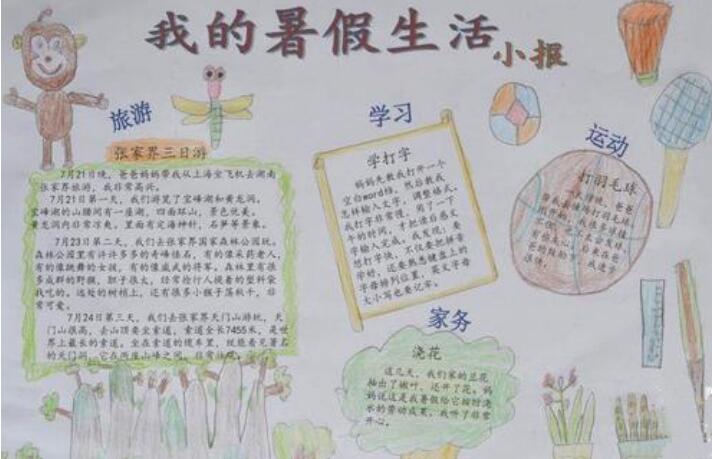 我的暑假生活
小报
旅游
张家界三日游
7月21日晚，爸爸妈妈带我从上海坐飞机去湖南
张家界旅游，我非常高兴。
7月21日第一天，我们游览了宝峰湖和黄龙洞。
宝峰湖的山腰间有一座湖，四面环山，景色优美。
黄龙洞内非常凉爽，里面有定海神针，石笋等景象。
7月23日第二天，我们去张家界国家森林公园玩。
森林公园里有许许多多的奇峰怪石，有的像采药老人，
有的像跳舞的女孩，有的像威武的将军。森林里有很
多成群的野猴，胆子很大，经常抢行人提着的塑料袋
找吃的。远处的树梢上，还有很多小猴子荡秋千，非
常可爱。
7月24日第三天，我们去张家界天门山游玩，天
门山很高，去山顶要坐索道，索道全长7455米，是世
界上最长的索道，坐在索道的缆车里，就能看见著名
的天门洞，它在两座山峰之间，非常壮观。
学习
学打字
妈妈先教我打开一个
空白word档，然后教我
怎样输入文字，调整格式。
我打字非常慢，用了一下
午的时间，才把读后感文
字输入完成。我发现，要
想打字快，不仅要把拼音
学好，还要熟悉键盘上的
字母排列位置，英文字母
大小写也要记牢。
运动
打羽毛球
家务
浇花
这几天，我们家的豆花
抽出了嫩叶，还开了花。妈
妈说这是我暑假给它按时浇
水的劳动成果，我听了非常
开心。